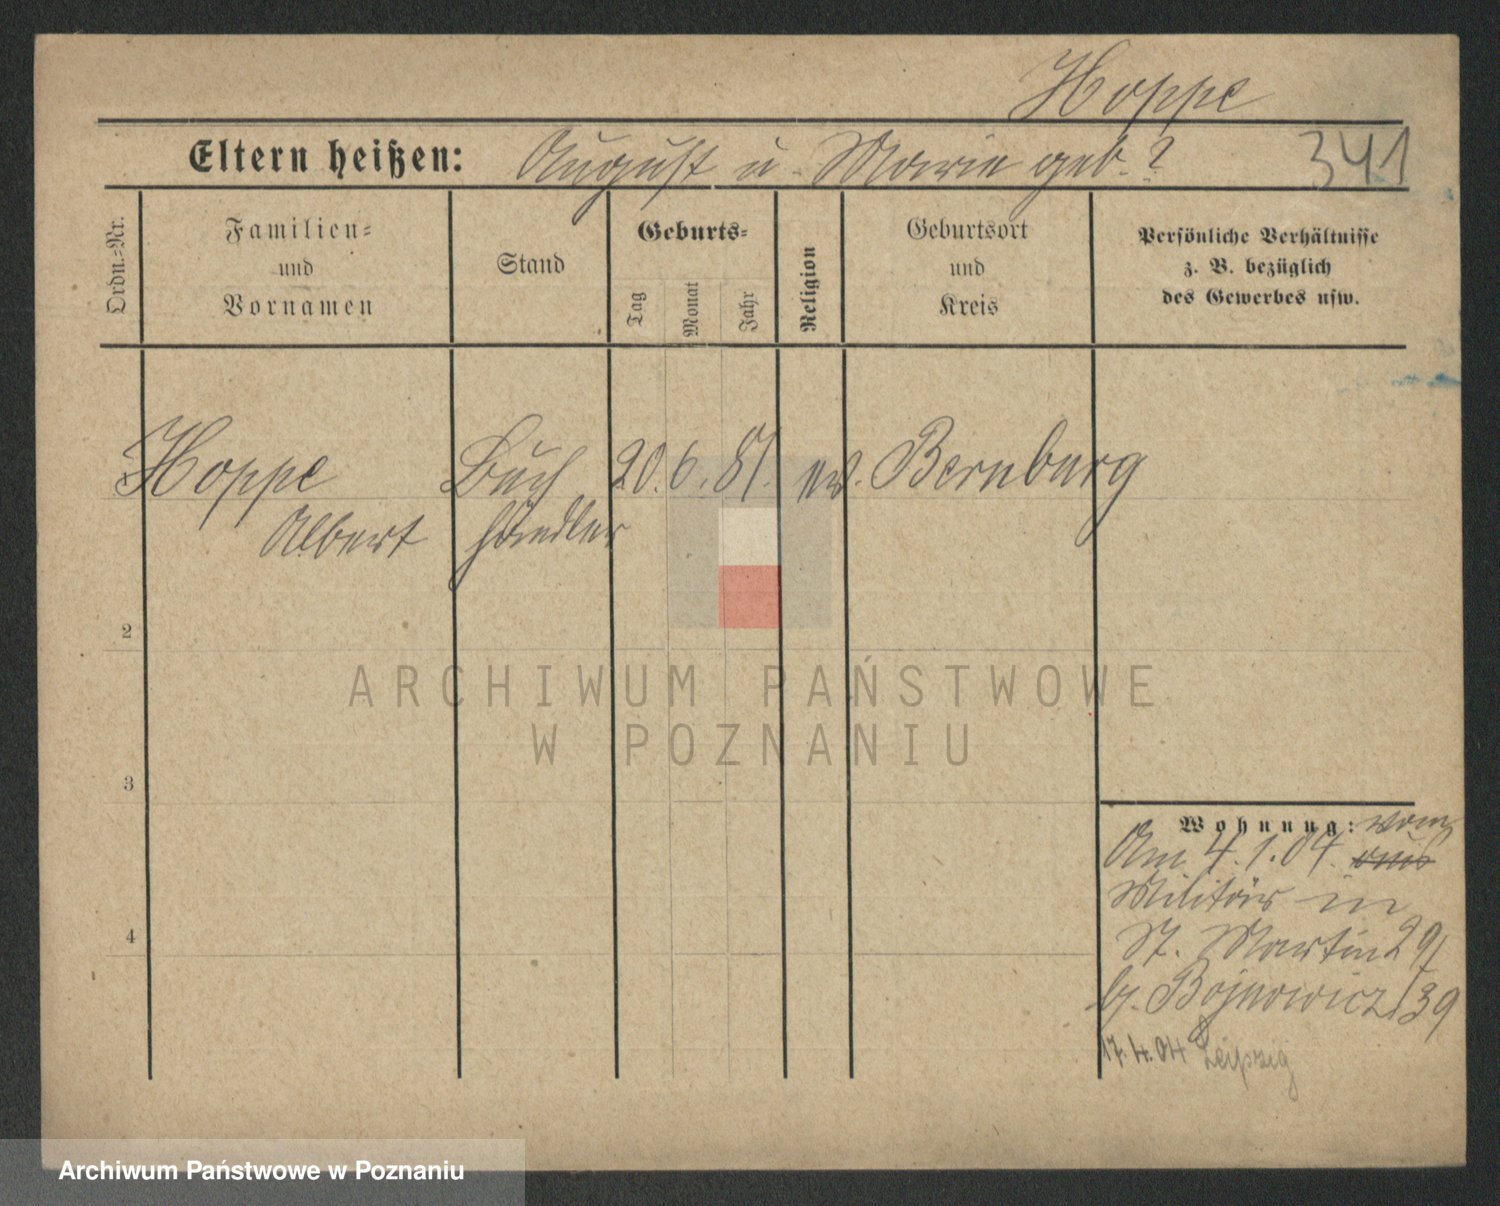 Hoppe
Eltern heißen: August u. Marie geb. ?
341
Ordn.-Nr.
Familien-
und
Vornamen
Stand
Geburts-
Tag
Monat
Jahr
Religion
Geburtsort
und
Kreis
Persönliche Verhältnisse
z. B. bezüglich
des Gewerbes usw.
Hoppe Buch 20. 6. 81. ev. Bernburg
Albert händler
2
3
4
ARCHIWUM PAŃSTWOWE
W POZNANIU
Wohnung: vom
Am 4.1.04. aus
Militär in
St. Martin 29/
b. 39
17.4.04 Leipzig
Archiwum Państwowe w Poznaniu